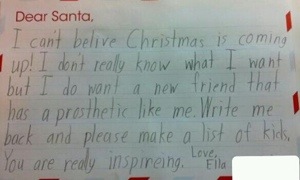 Dear Santa,
I can't belive Christmas is coming
up! I don't really know what I want
but I do want a new friend that
has a prosthetic like me. Write me
back and please make a list of kids.
You are really inspireing. Love,
Ella